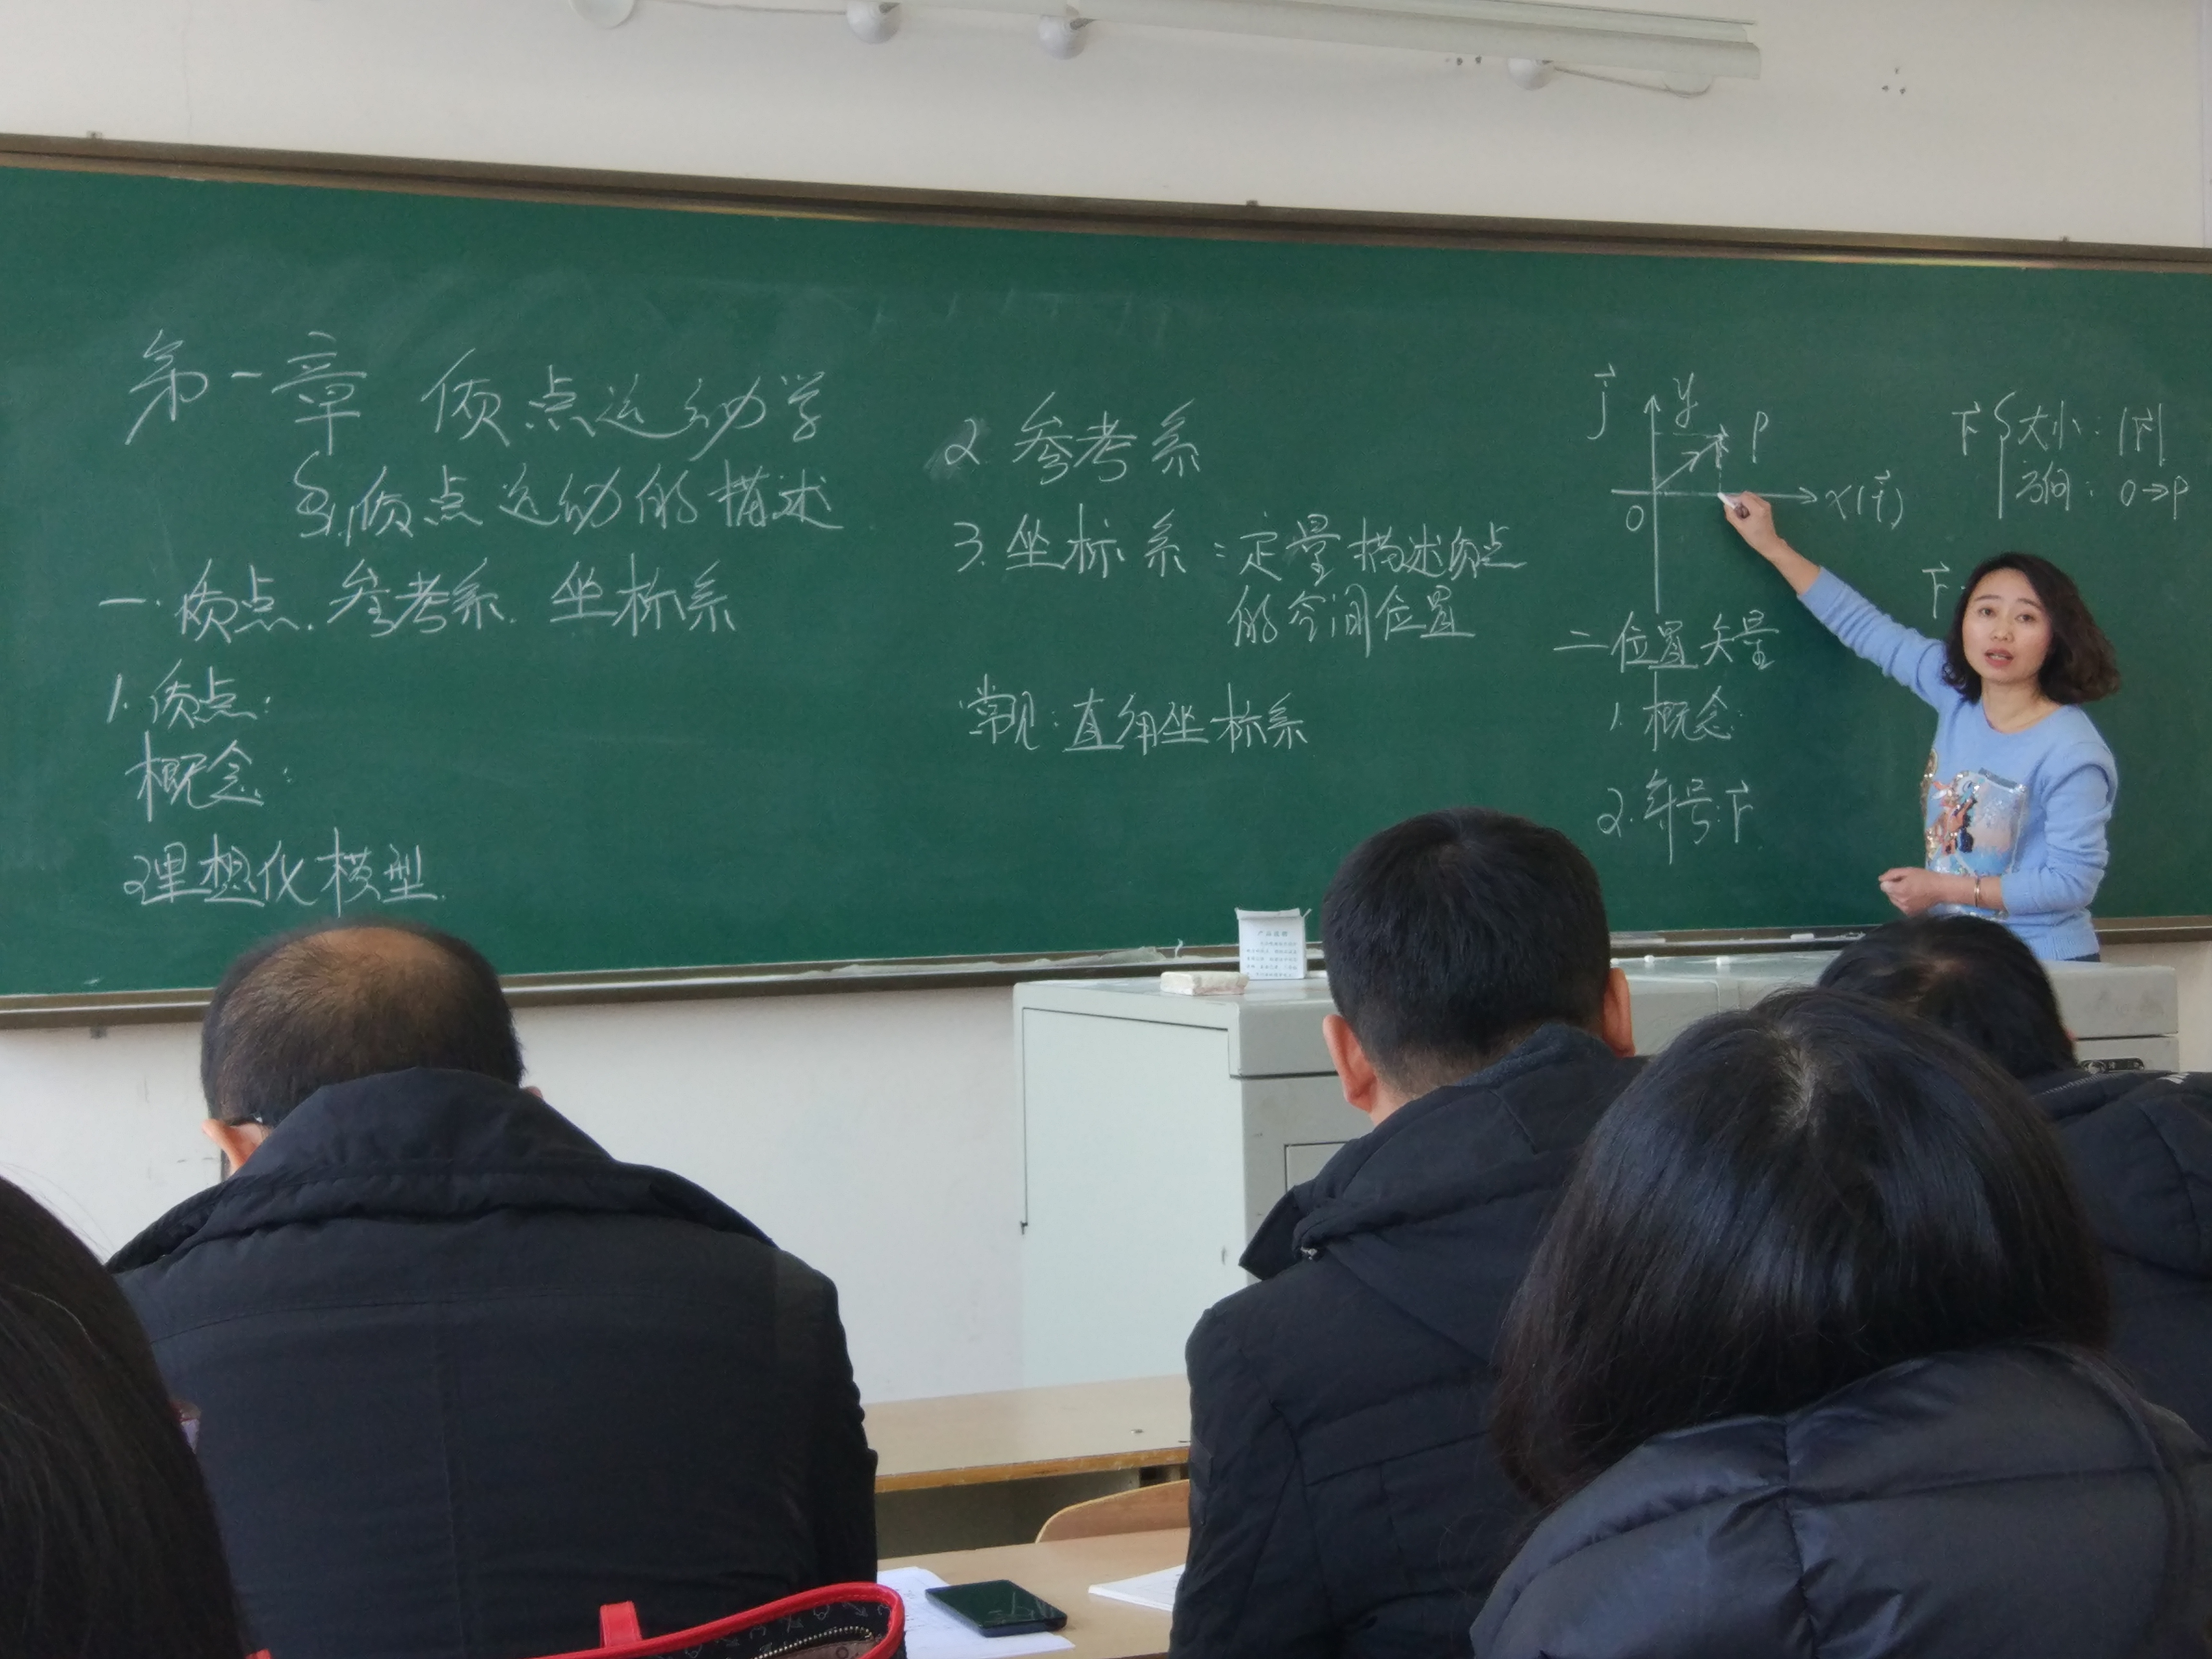 第一章 质点运动学
§1.质点运动的描述
一.质点.参考系.坐标系
1.质点:
概念:
理想化模型.
2.参考系
3.坐标系:定量描述质点
的空间位置
常见:直角坐标系
j⃗ y P
O x(i⃗)
二位置矢量
1.概念:
2.符号:r⃗
r⃗ { 大小:|r⃗|
方向:O→P
r⃗